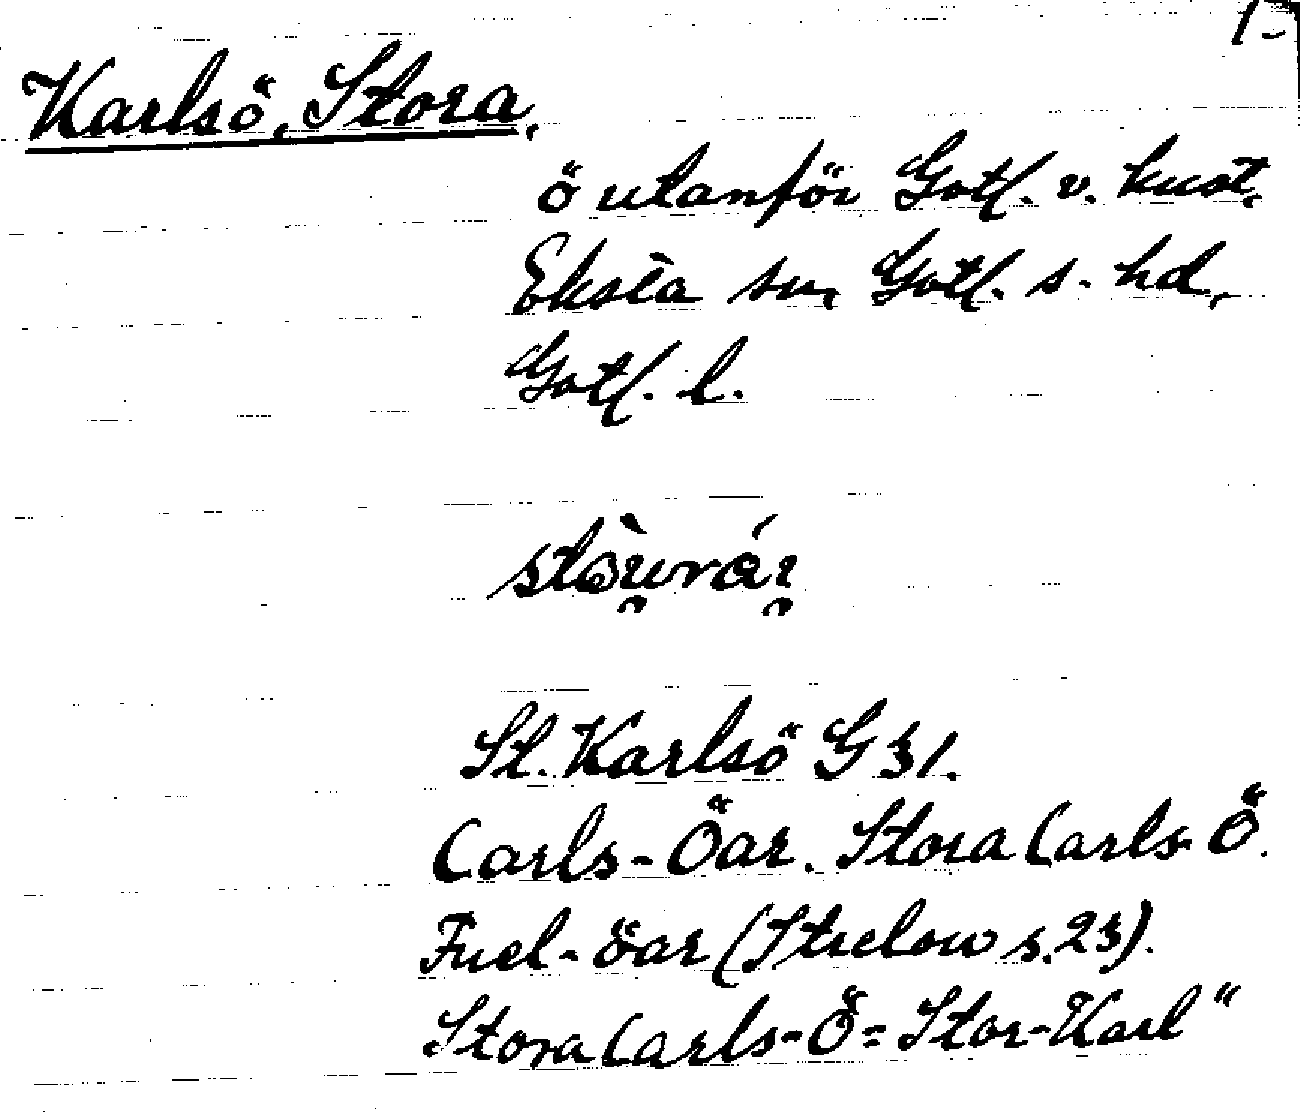 1-
Karlsö, Stora,
ö utanför Gotl. v. kust,
Eksta sn, Gotl. s. hd,
Gotl. l.
St. Karlsö G 31.
Carls-Öar. Stora Carls-Ö.
Fuel-öar (Strelow s. 23).
Stora Carls-Ö = Stor-Karl"